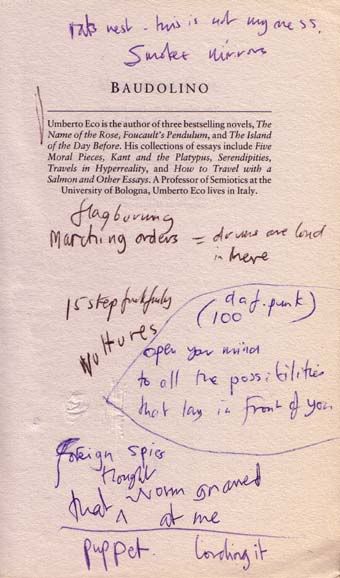 rats nest - this is not my mess.
Smoke mirrors
BAUDOLINO
Umberto Eco is the author of three bestselling novels, The
Name of the Rose, Foucault's Pendulum, and The Island
of the Day Before. His collections of essays include Five
Moral Pieces, Kant and the Platypus, Serendipities,
Travels in Hyperreality, and How to Travel with a
Salmon and Other Essays. A Professor of Semiotics at the
University of Bologna, Umberto Eco lives in Italy.
flagburning
Marching orders = drums are loud
in here
15 step
(daf. punk)
100
Vultures
open your mind
to all the possibilities
that lay in front of you
foreign spies
thought
that worm gnawed
at me
puppet. Lording it